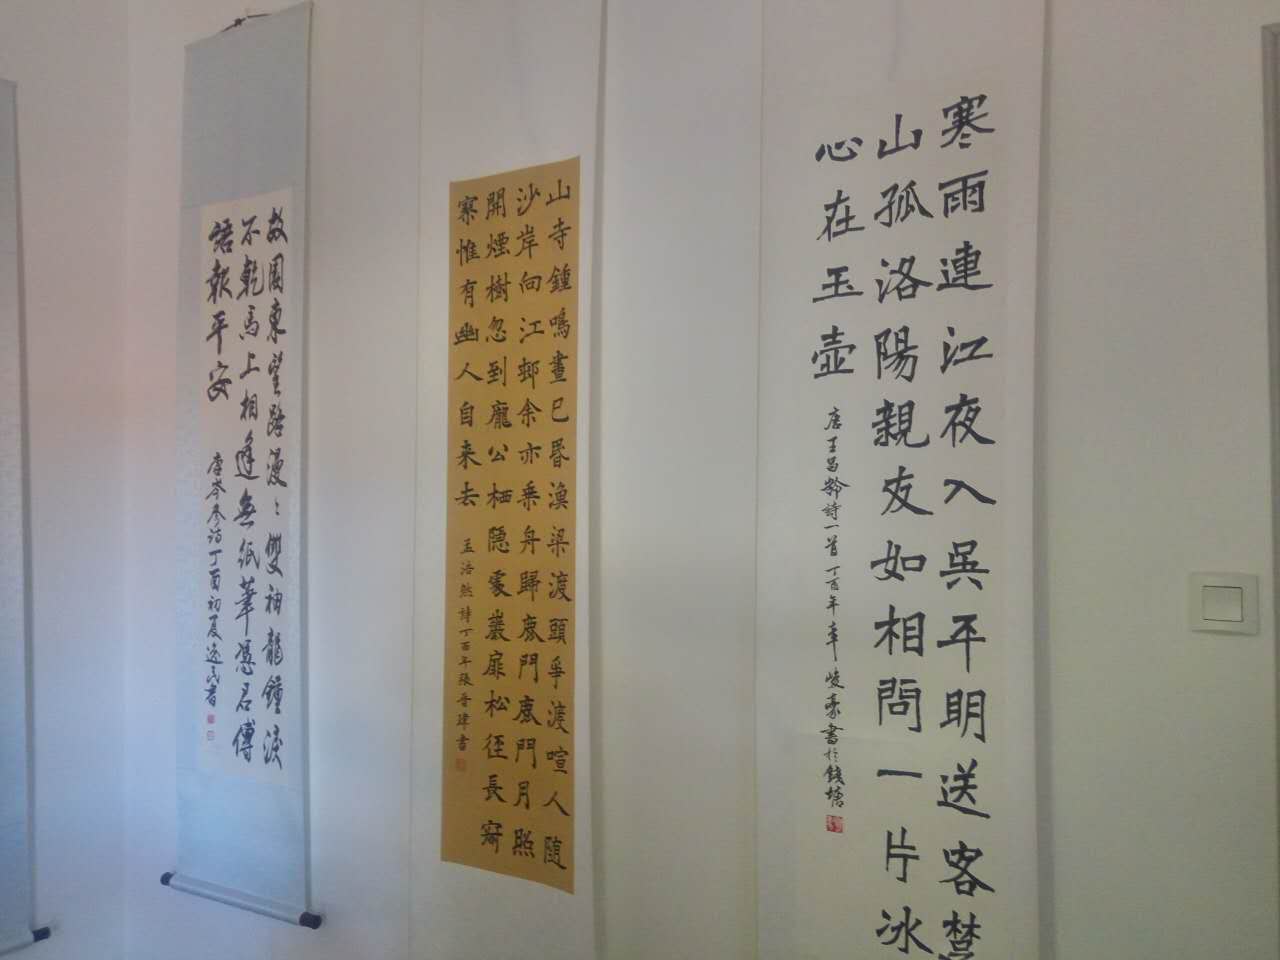 寒雨連江夜入吳平明送客楚
山孤洛陽親友如相問一片冰
心在玉壺
唐王昌齡詩一首丁酉年辛峻豪書於錢塘
山寺鍾鳴晝已昏漁梁渡頭爭渡喧人随
沙岸向江邨余亦乗舟歸鹿門鹿門月照
開煙樹忽到龐公栖隠處巖扉松徑長寂
寥惟有幽人自来去
孟浩然詩丁酉年張晉瑋書
故園東望路漫〻雙袖龍鍾淚
不乾馬上相逢無紙筆憑君傳
語報平安
唐岑参詩丁酉初夏逸民書